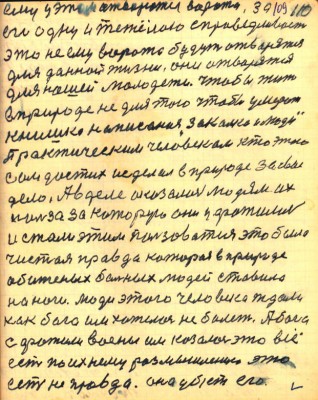 ему уже отворятся ворота, 39/09 110
его одну и тяжёлого справедливость
это не ему ворота будут отварятся
для данной жизни, они отварятся
для нашей молодежи. Чтобы жит
в природе не для того чтобы умерет
книшка написания "Закалка и Люди"
Практическим человеком кто этого
сам достих и сделал в природе за свае
дело, А в деле оказалас людям их
полза за которую они ухватилис
и стали этим ползоватся это было
чистая правда которая в природе
обиженых болных людей ставила
на ноги. Люди этого человека ждали
как бога им хотелося не болет. А бога
им козалос это всё
ест по их нему размышлению это
ест не правда. она убьёт его.